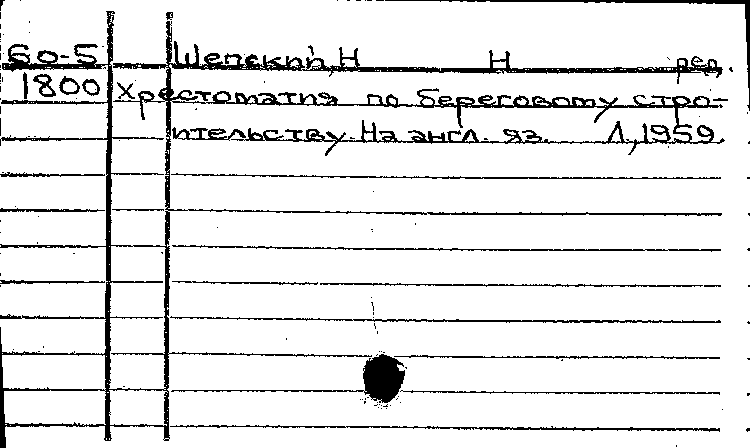 60-5 Шепский, Н Н ред.
1800 Хрестоматия по береговому стро-
ительству. На англ. яз. Л, 1959.